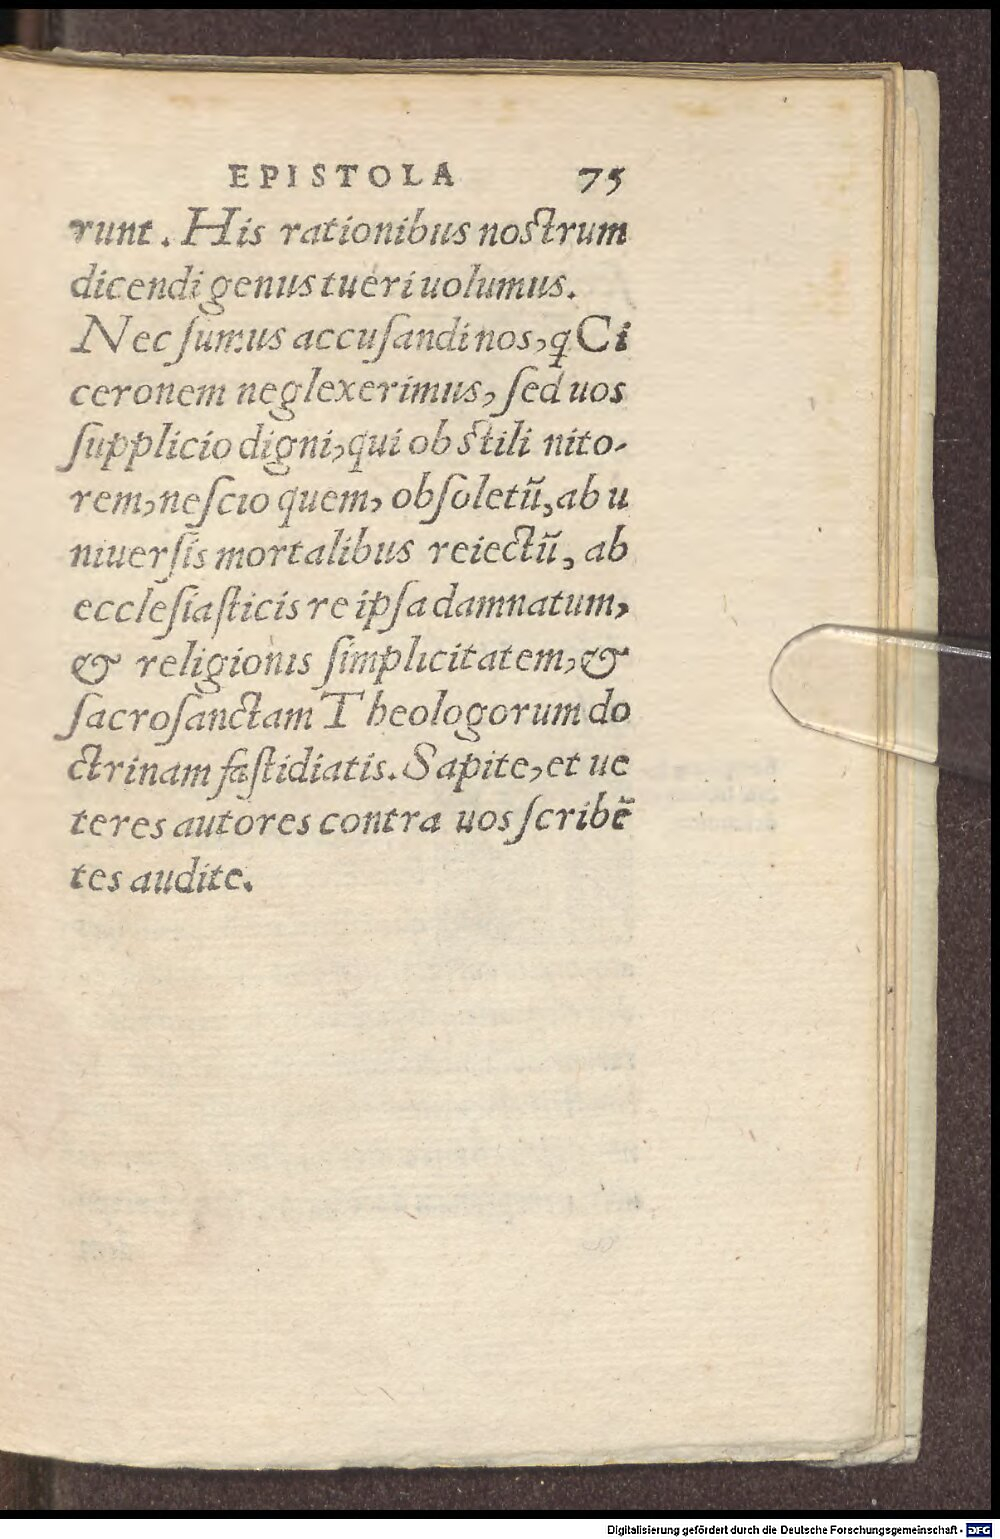 EPISTOLA 75
runt. His rationibus nostrum
dicendi genus tueri uolumus.
Nec ſumus accuſandi nos, q Ci
ceronem neglexerimus, ſed uos
ſupplicio digni, qui ob stili nito-
rem, neſcio quem, obſoletū, ab u
niuerſis mortalibus reiectū, ab
eccleſiaſticis re ipſa damnatum,
& religionis ſimplicitatem, &
ſacroſanctam Theologorum do
ctrinam faſtidiatis. Sapite, et ue
teres autores contra uos ſcribē
tes audite.
Digitalisierung gefördert durch die Deutsche Forschungsgemeinschaft - DFG